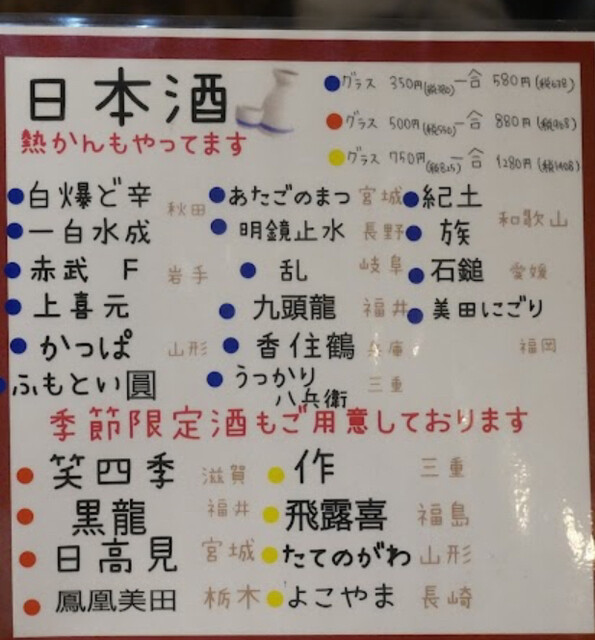 日本酒
熱かんもやってます
グラス 350円(税380) 一合 580円(税638)
グラス 500円(税550) 一合 880円(税968)
グラス 750円(税825) 一合 1280円(税1408)
白爆ど辛 秋田
一白水成
赤武 F 岩手
上喜元
かっぱ 山形
ふもとい圓
あたごのまつ 宮城
明鏡止水 長野
乱 岐阜
九頭龍 福井
香住鶴 兵庫
うっかり
八兵衛 三重
紀土
族 和歌山
石鎚 愛媛
美田にごり
福岡
季節限定酒もご用意しております
笑四季 滋賀
黒龍 福井
日高見 宮城
鳳凰美田 栃木
作 三重
飛露喜 福島
たてのがわ 山形
よこやま 長崎